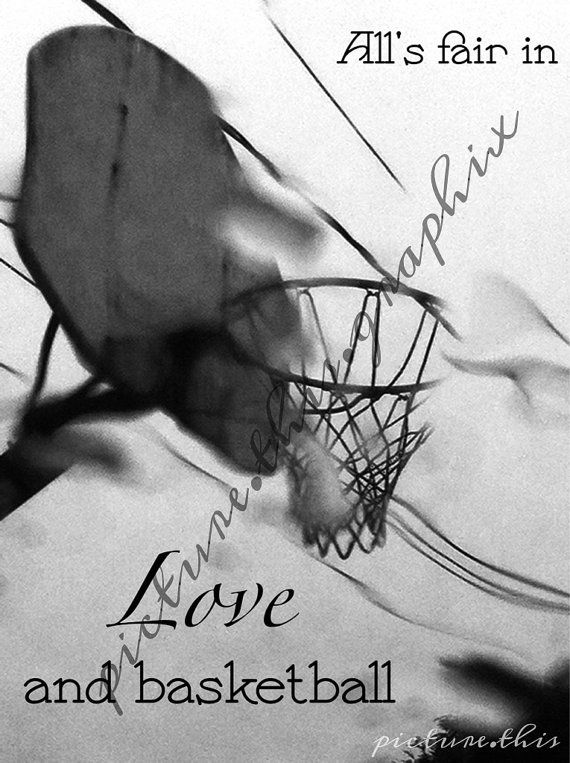 All's fair in
picture.this.graphix
Love
and basketball
picture.this